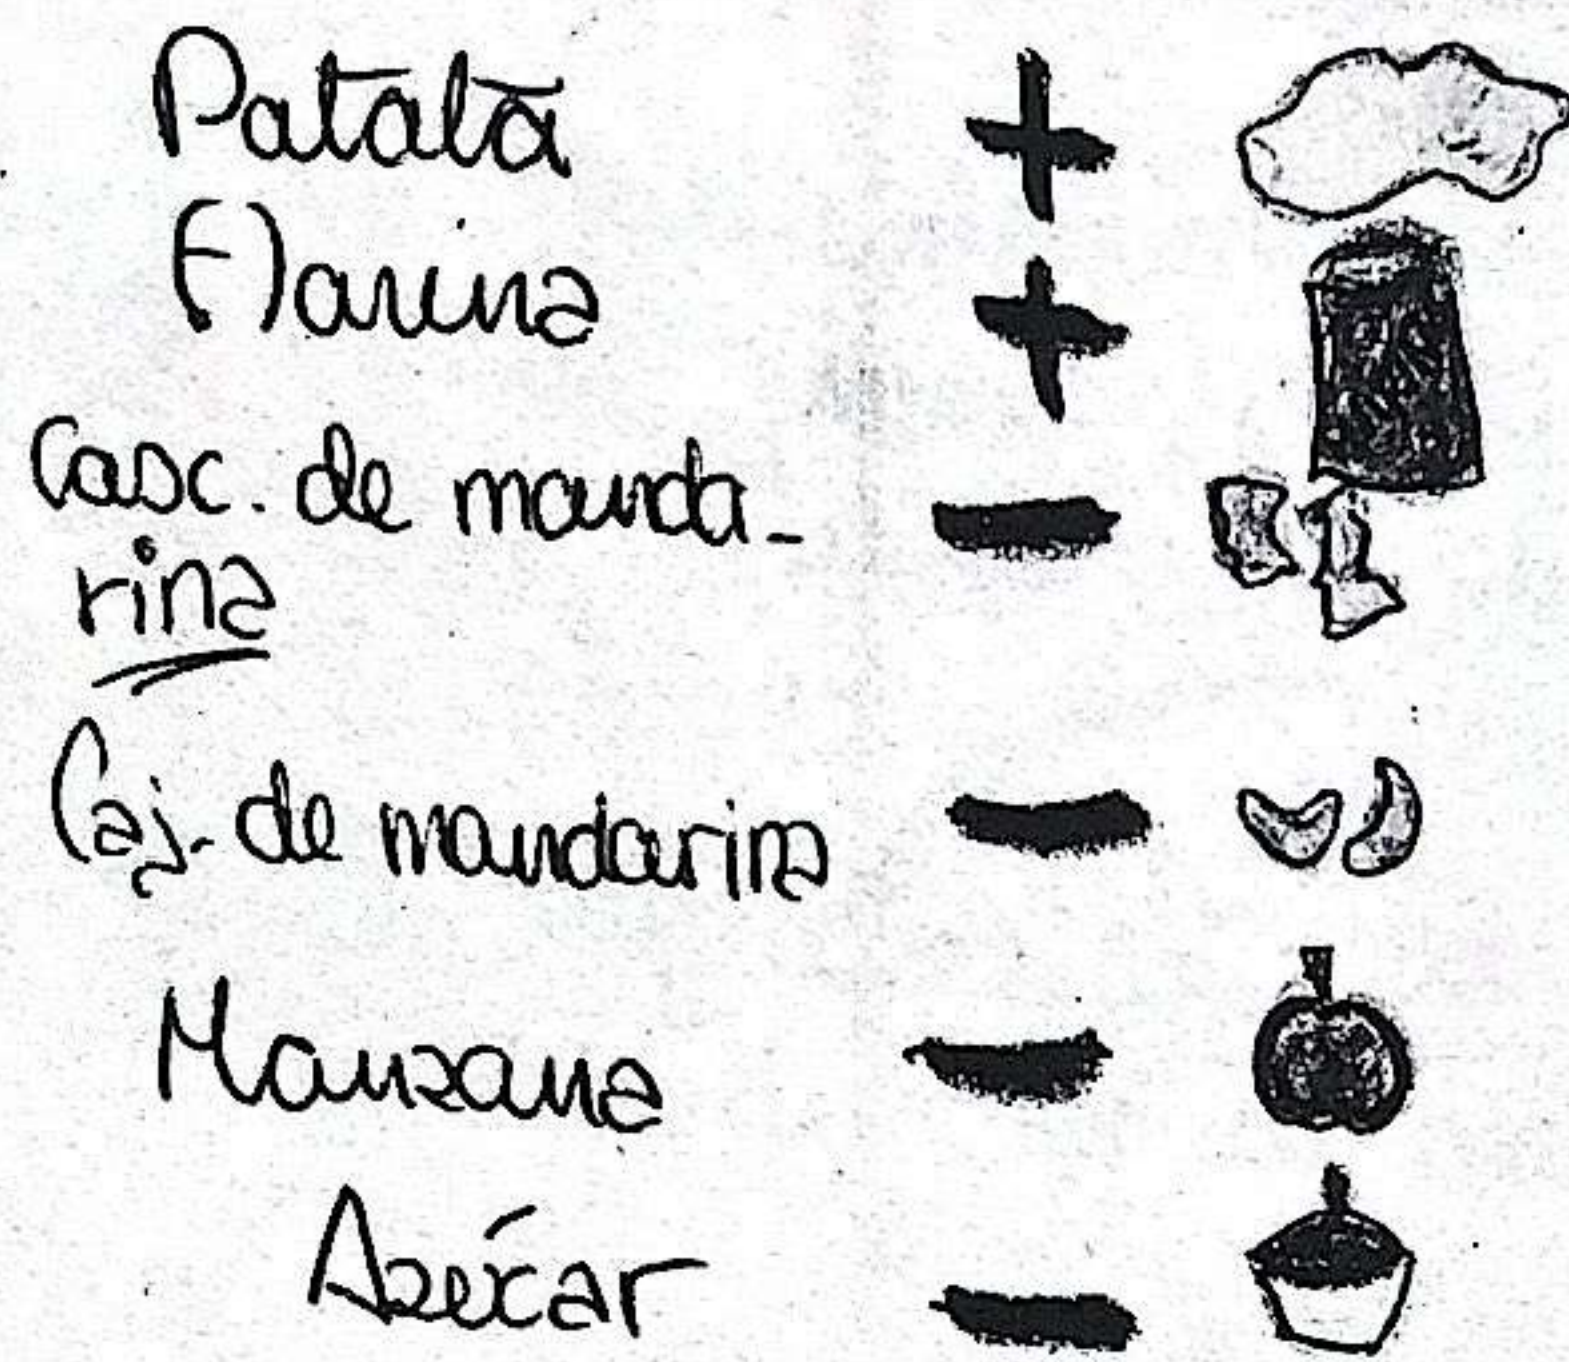 Patata +
Harina +
Casc. de manda- -
rina
Caj. de mandarina -
Manzana -
Azúcar -